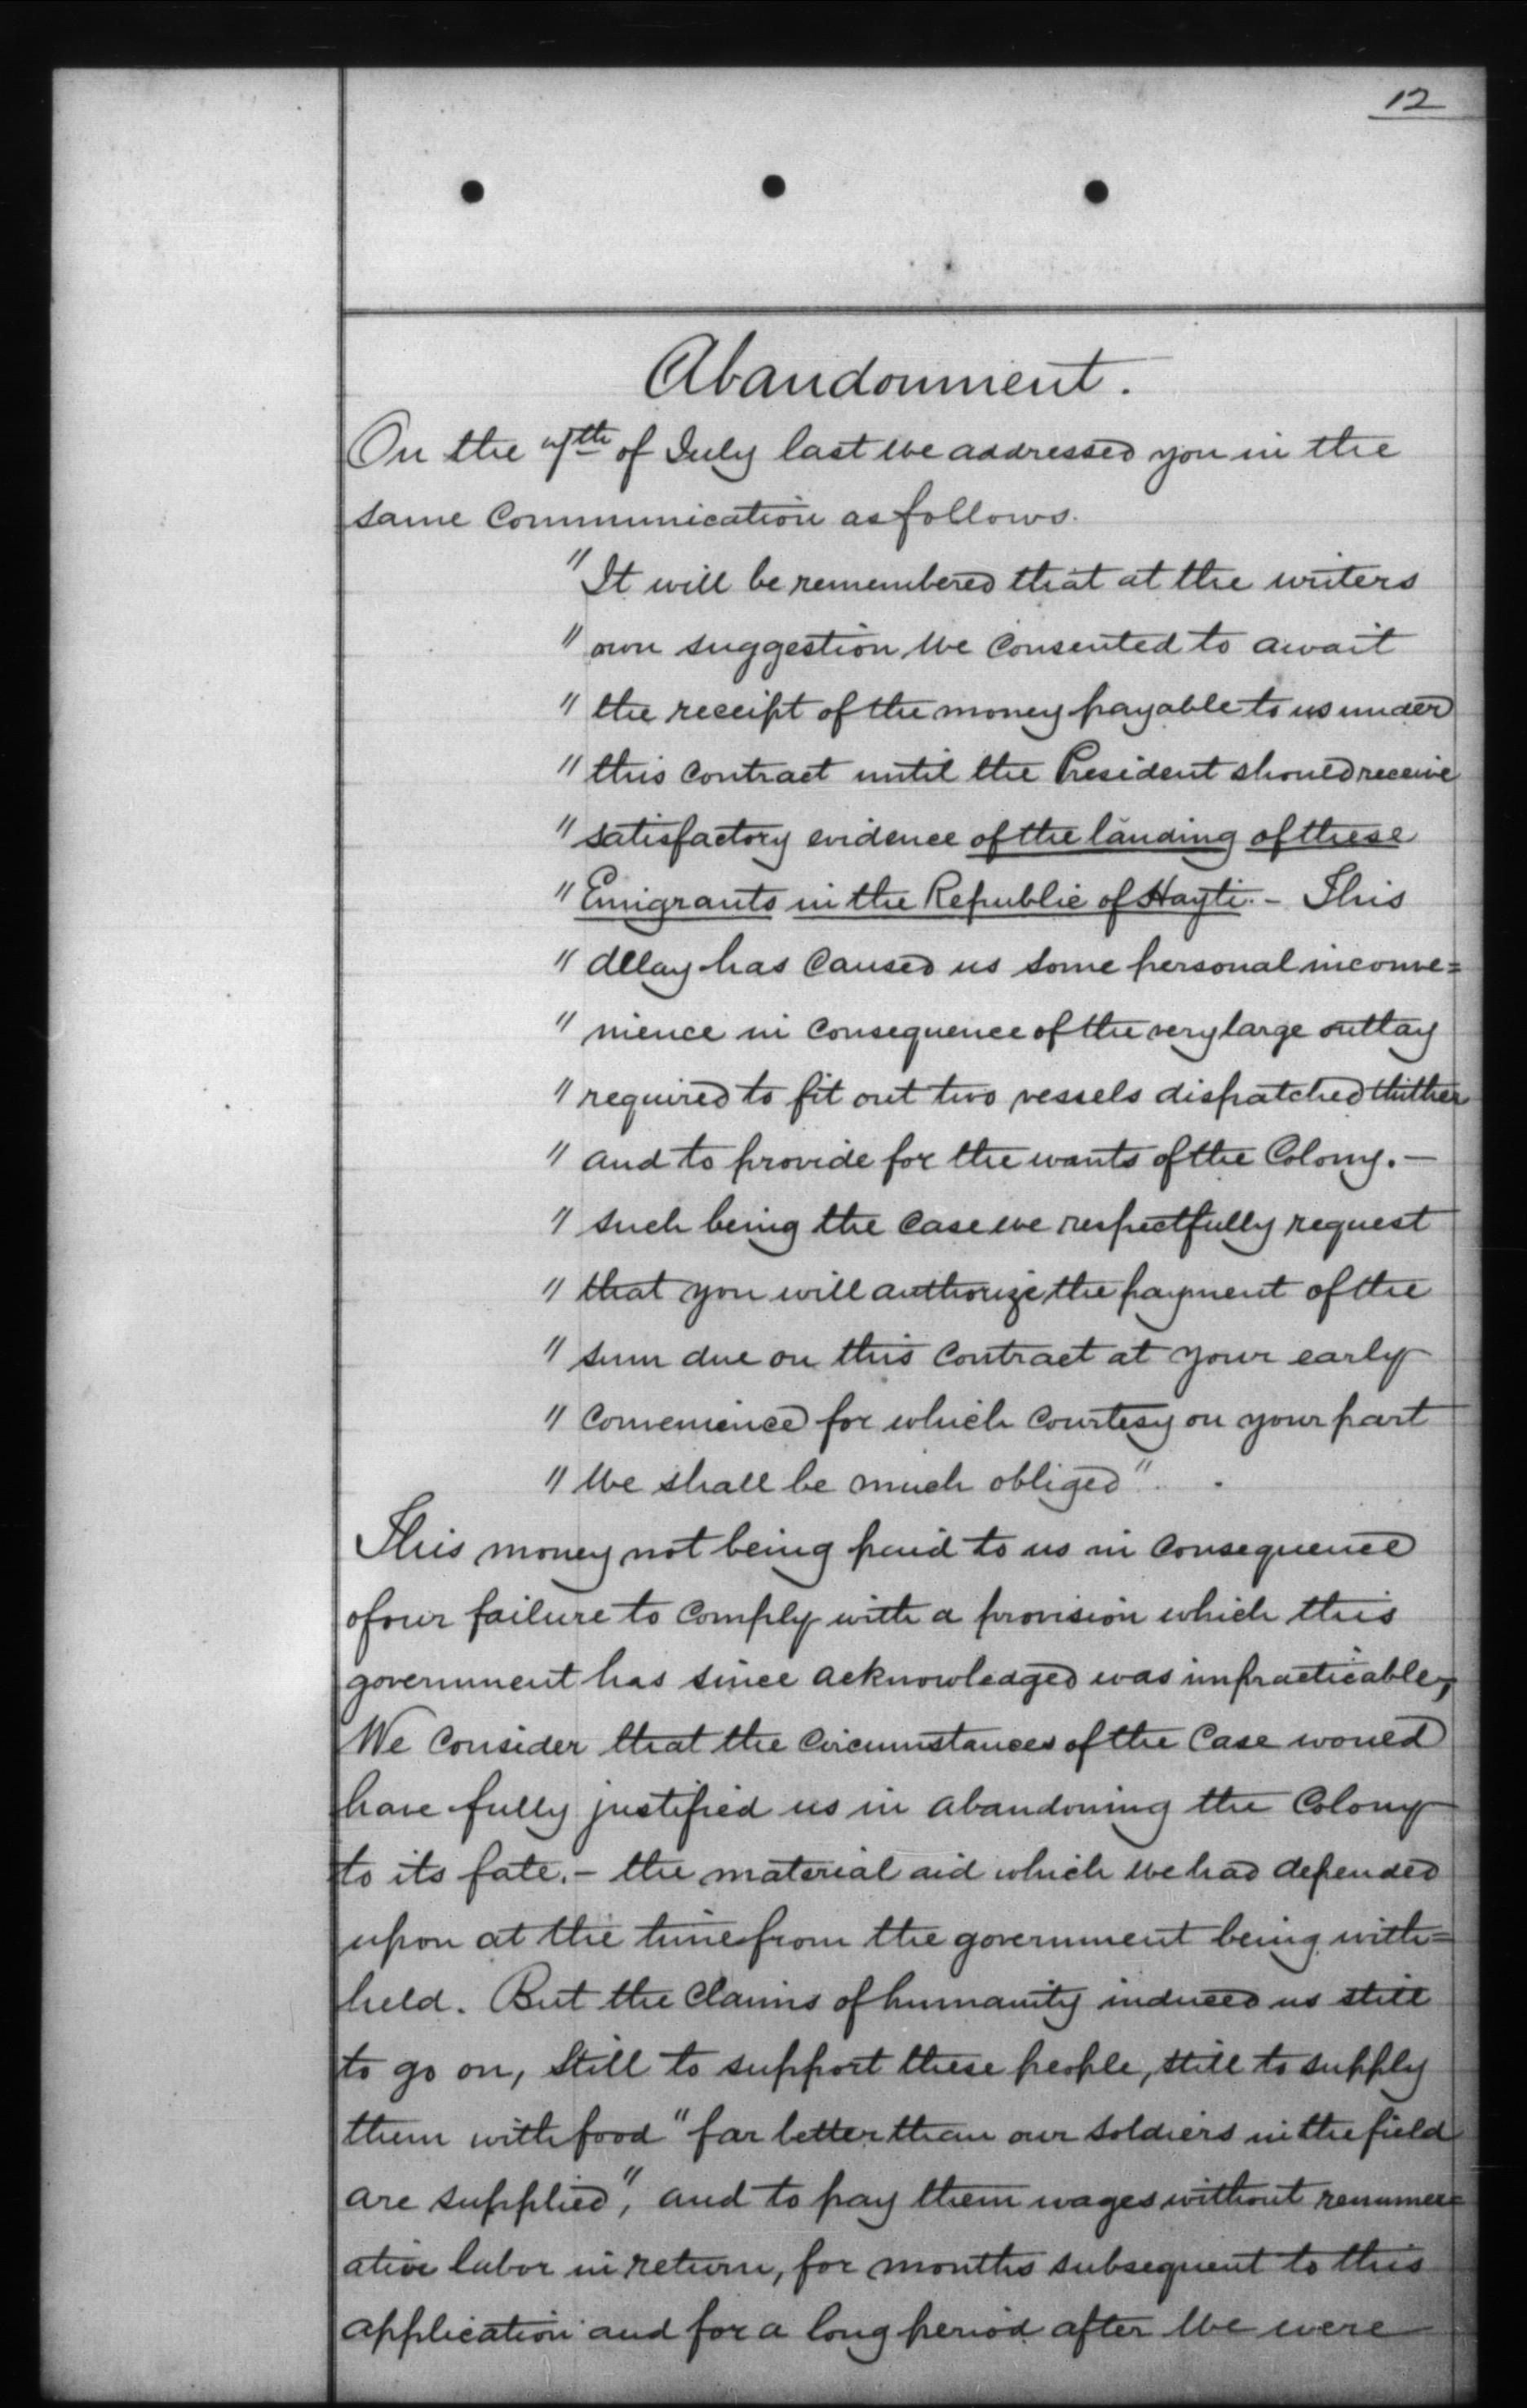 12
Abandonment.
On the 7th of July last we addressed you in the
same Communication as follows.
"It will be remembered that at the writers
" own suggestion we consented to await
" the receipt of the money payable to us under
" this Contract until the President should receive
" satisfactory evidence of the landing of these
" Emigrants in the Republic of Hayti. - This
" delay has caused us some personal inconve=
" nience in consequence of the very large outlay
" required to fit out two vessels dispatched thither
" and to provide for the wants of the Colony. -
" such being the Case we respectfully request
" that you will authorize the payment of the
" sum due on this Contract at your early
" Convenience for which Courtesy on your part
" We shall be much obliged".
This money not being paid to us in Consequence
of our failure to Comply with a provision which this
government has since acknowledged was impracticable,
We Consider that the Circumstances of the Case would
have fully justified us in abandoning the Colony
to its fate. - the material aid which we had depended
upon at the time from the government being with=
held. But the Claims of humanity induced us still
to go on, still to support these people, still to supply
them with food "far better than our soldiers in the field
are supplied", and to pay them wages without renumer=
ative labor in return, for months subsequent to this
application and for a long period after we were